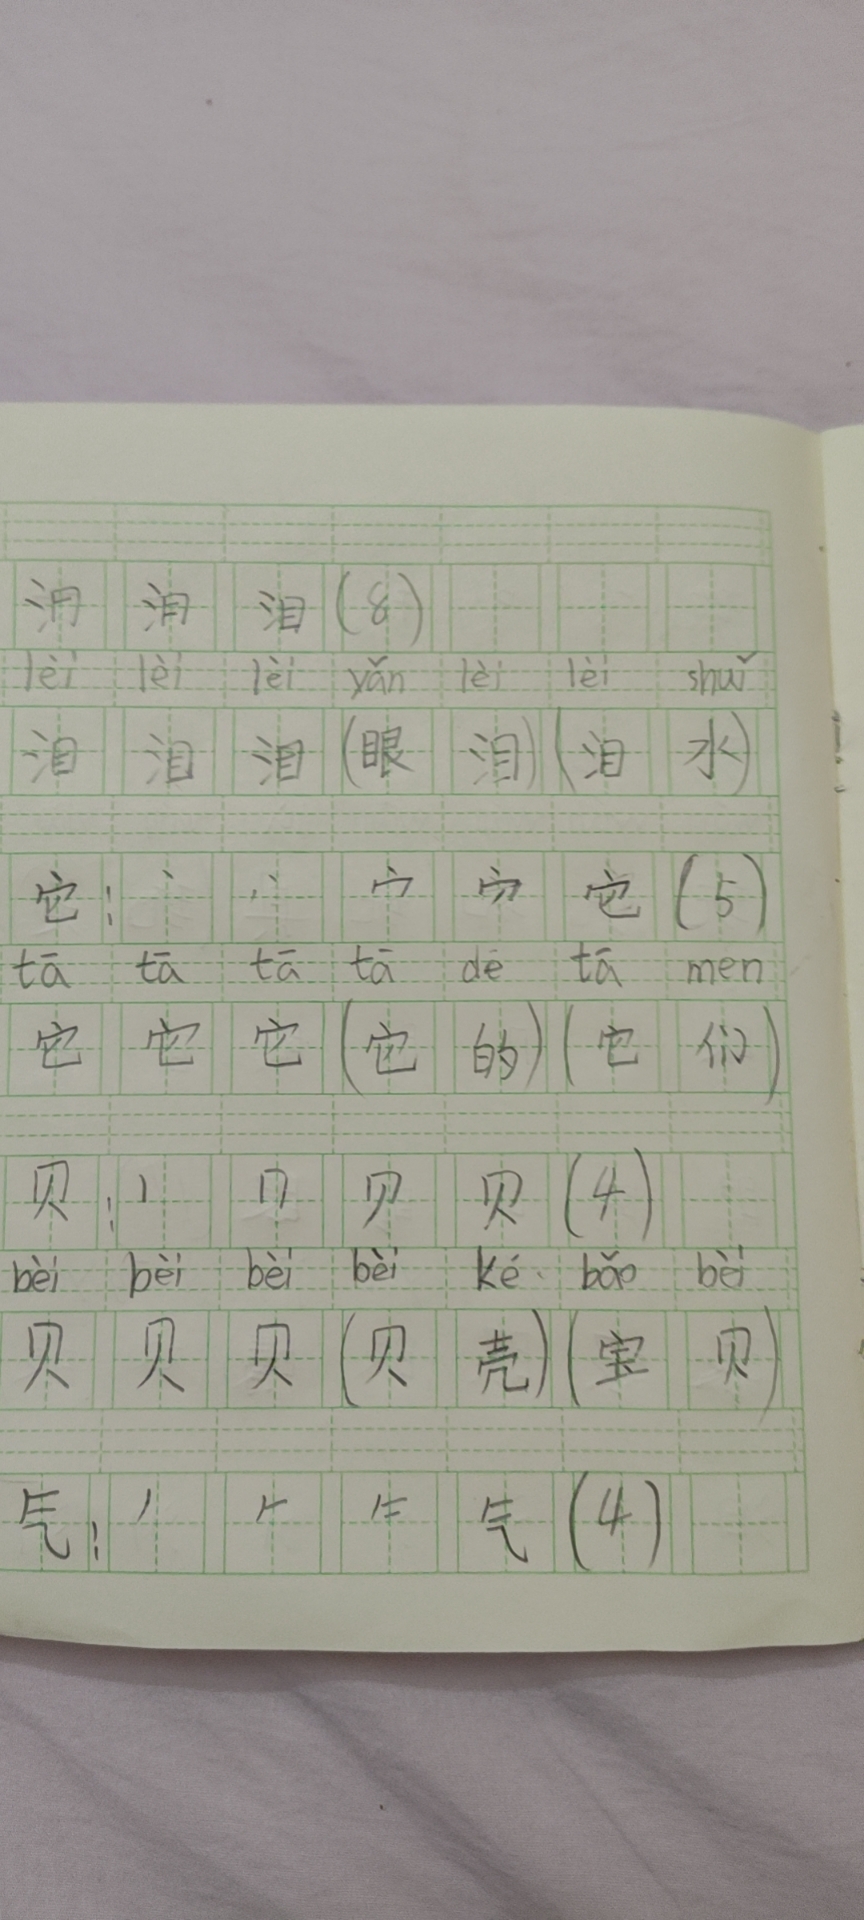 泪 泪 (8)
lèi lèi lèi yǎn lèi lèi shuǐ
泪 泪 泪 (眼 泪) (泪 水)
它: 丶 丷 宀 它 (5)
tā tā tā tā dē tā men
它 它 它 (它 的) (它 们)
贝: 丨 冂 贝 (4)
bèi bèi bèi bèi ké bǎo bèi
贝 贝 贝 (贝 壳) (宝 贝)
气: 丿 𠂉 气 (4)